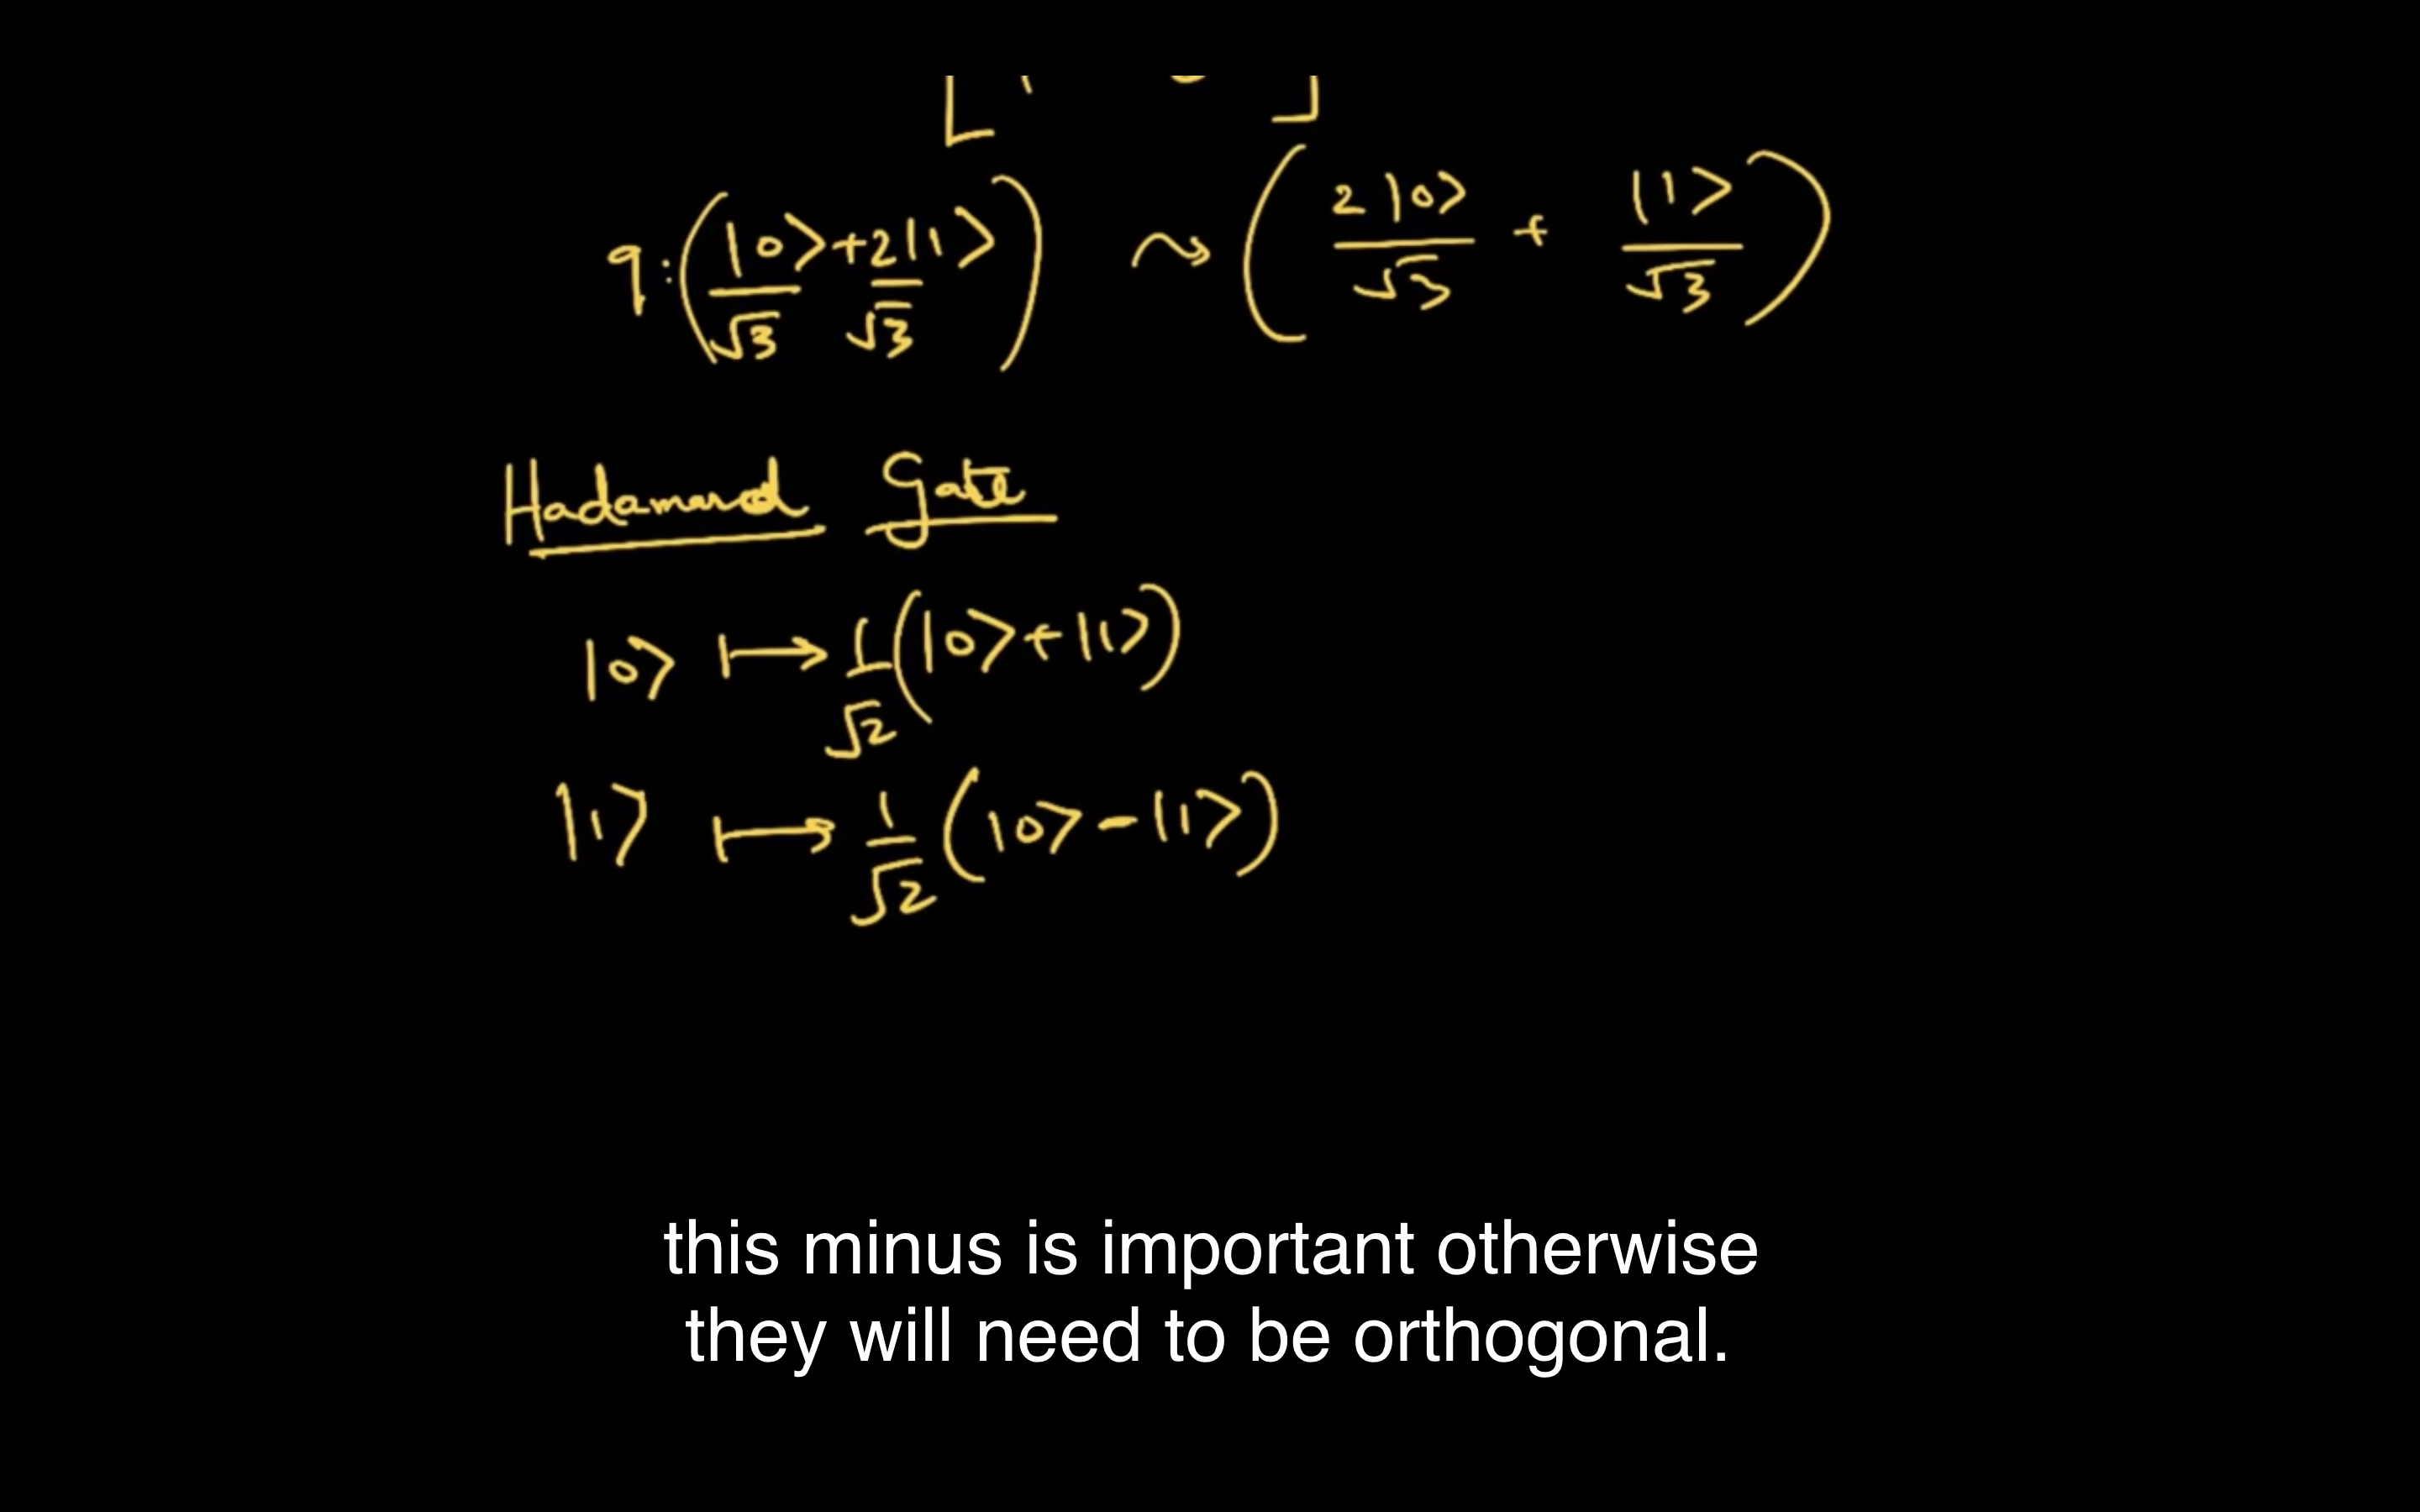 q: (|0>/√3 + 2|1>/√3) ⤳ (2|0>/√3 + |1>/√3)
Hadamard Gate
|0> ↦ 1/√2 (|0> + |1>)
|1> ↦ 1/√2 (|0> - |1>)
this minus is important otherwise
they will need to be orthogonal.